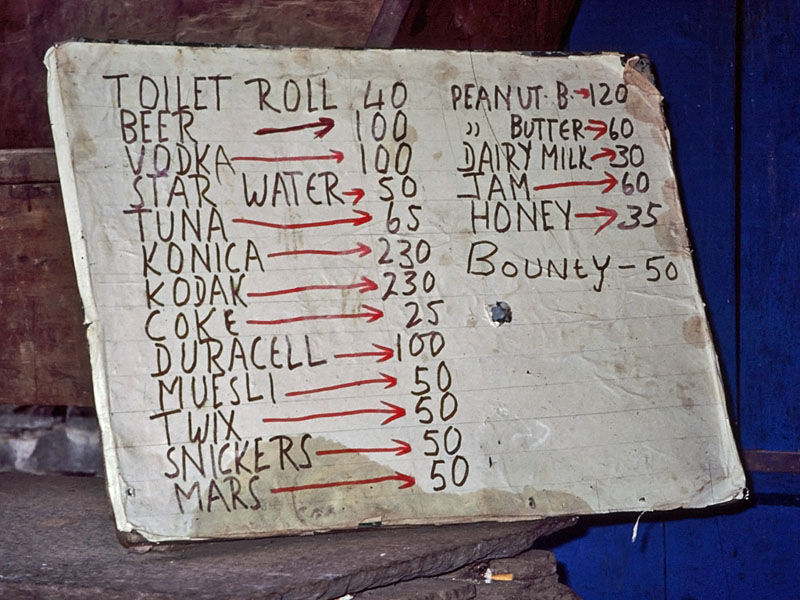 TOILET ROLL 40
BEER → 100
VODKA → 100
STAR WATER → 50
TUNA → 65
KONICA → 230
KODAK → 230
COKE → 25
DURACELL → 100
MUESLI → 50
TWIX → 50
SNICKERS → 50
MARS → 50
PEANUT B → 120
" BUTTER → 60
DAIRY MILK → 30
JAM → 60
HONEY → 35
BOUNTY - 50